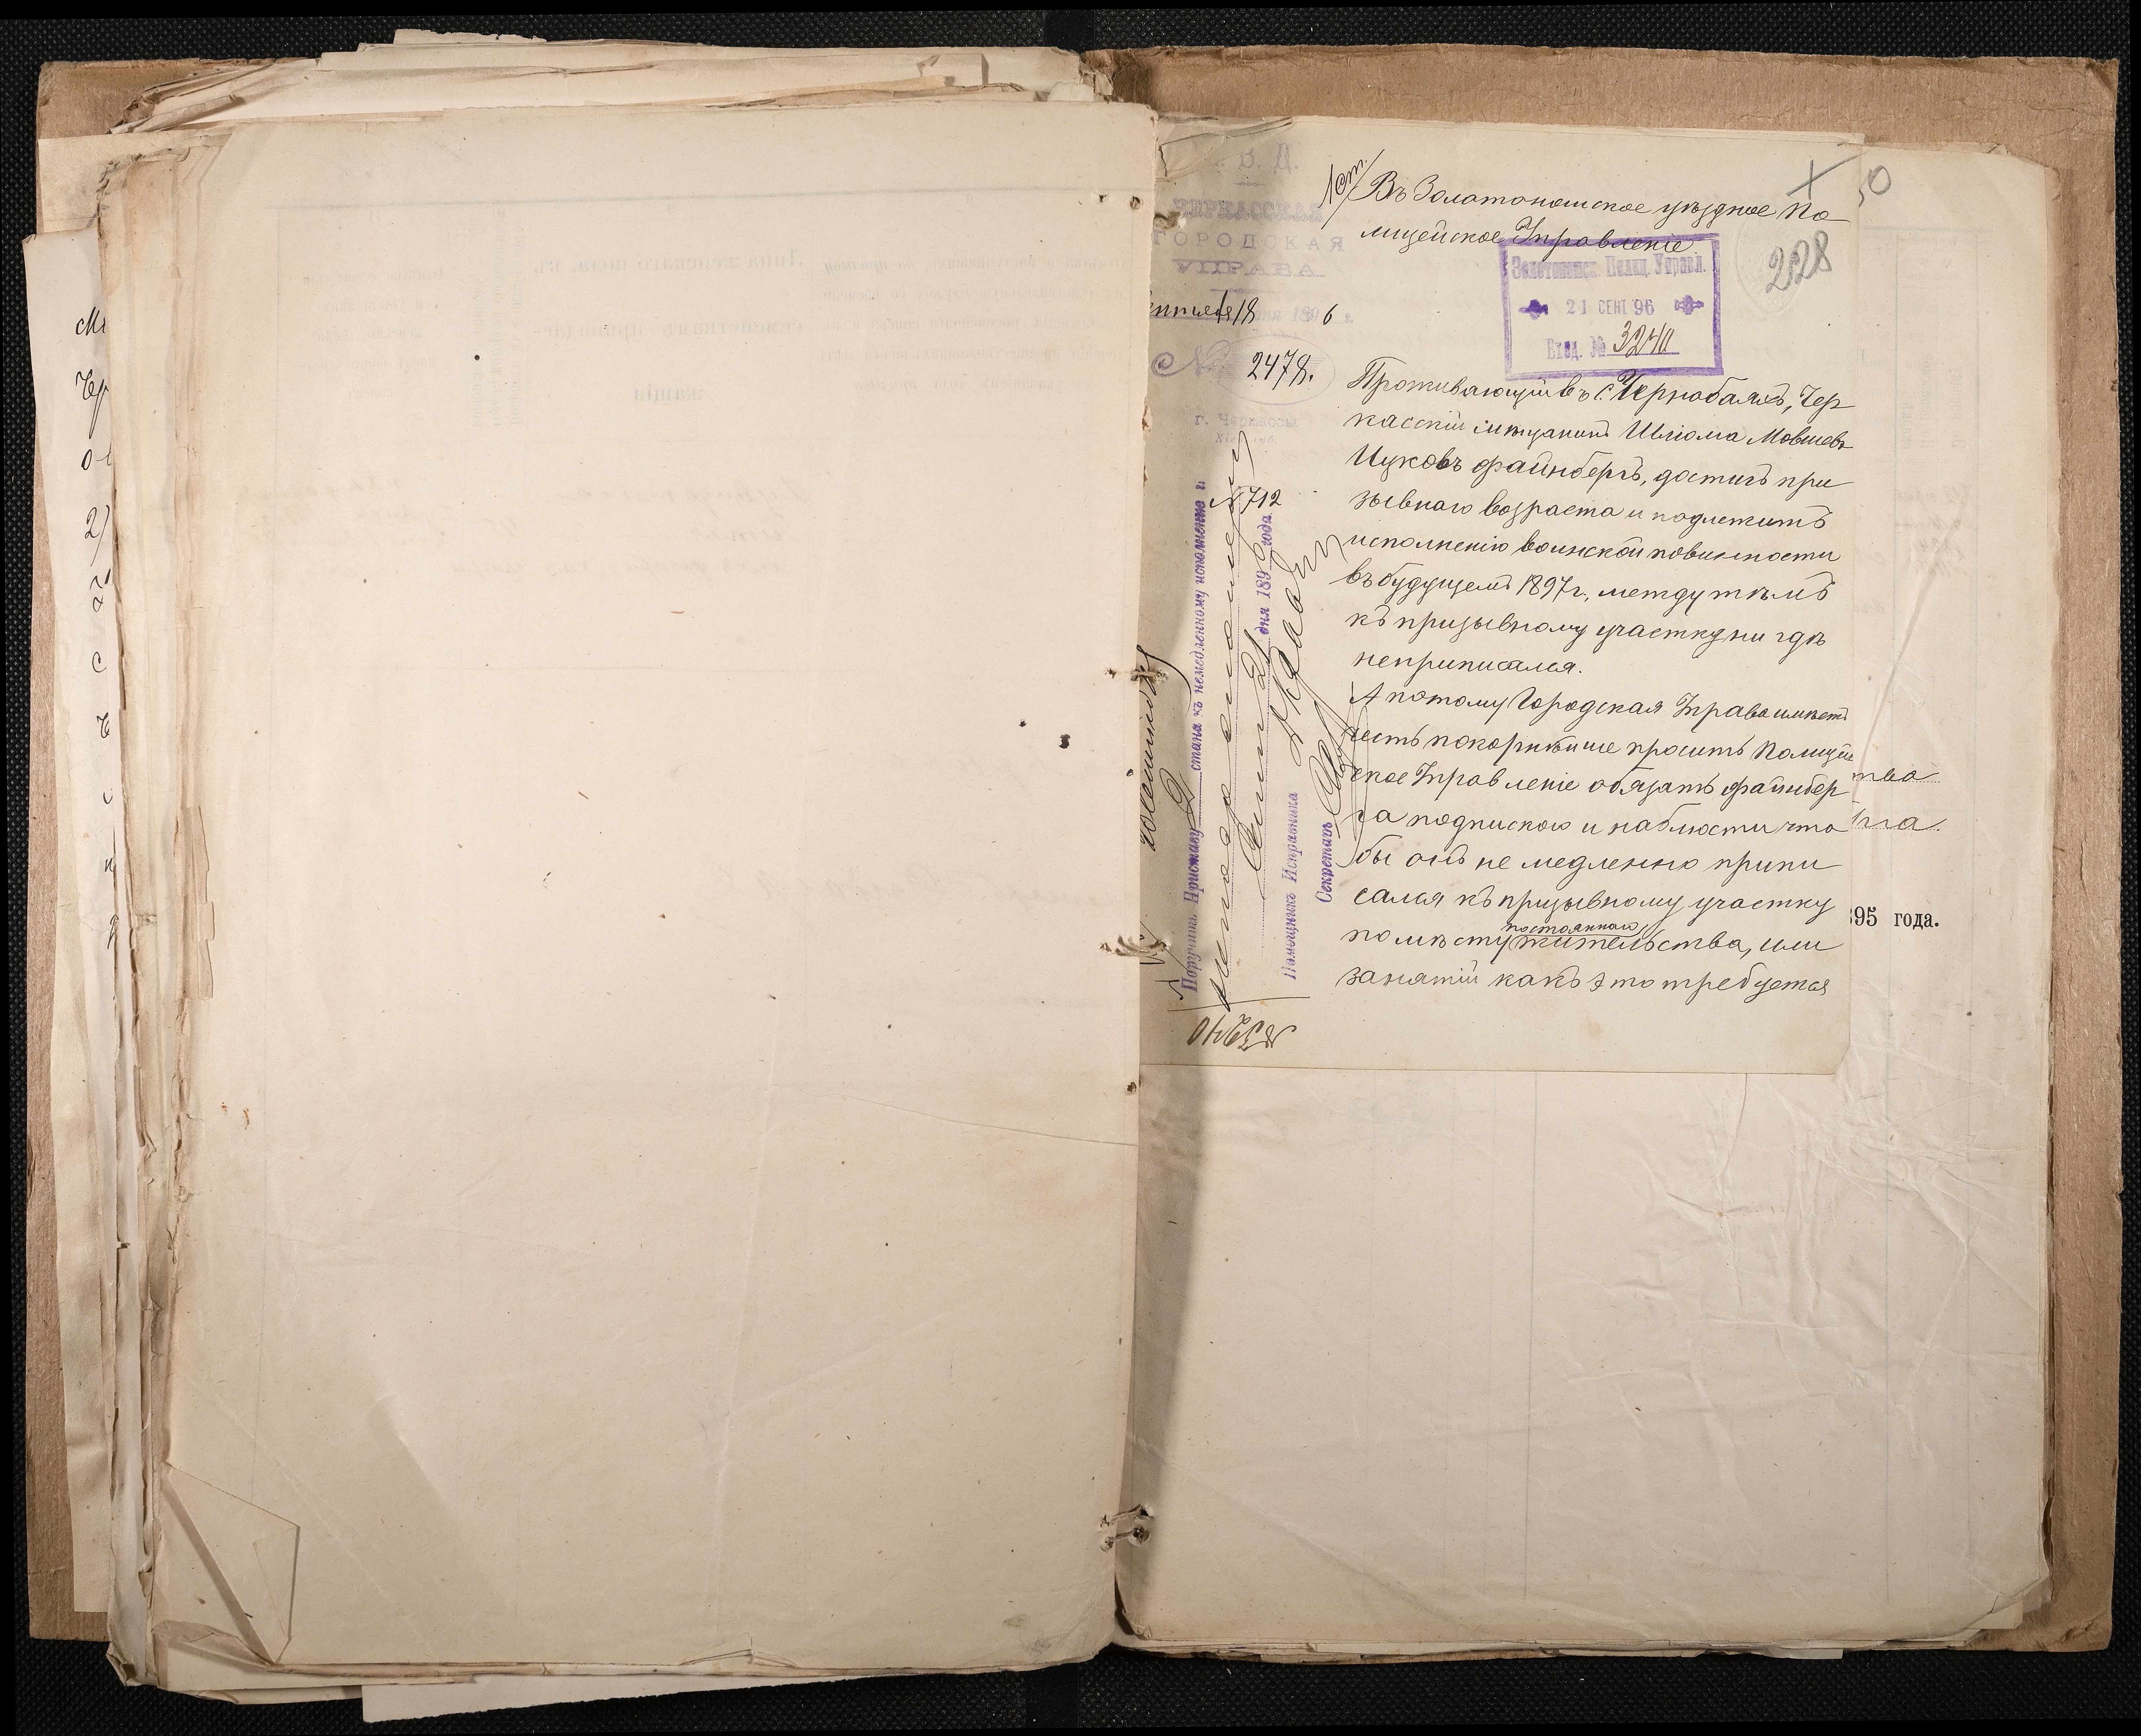 В. Д.
ЧЕРКАССКАЯ
ГОРОДСКАЯ
УПРАВА
18 дня 1896 г.
№ 2478.
г. Черкассы
1 ст.
Въ Золотоношское уѣздное По
лицейское Управленіе
50
228
Золотоношск. Полиц. Управл.
21 СЕНТ 96
Вход. № 3240
Проживающій въ с. Чернобаяхъ, Чер
касскій мѣщанинъ Шліома Мовшевъ
Ицковъ Файнбергъ, достигъ при
зывнаго возраста и подлежитъ
исполненію воинской повинности
въ будущемъ 1897 г., между тѣмъ
къ призывному участку ни гдѣ
неприписался.
А потому Городская Управа имѣетъ
честь покорнѣйше просить Полицей
ское Управленіе обязать Файнбер
га подпискою и наблюсти что
бы онъ не медленно припи
сался къ призывному участку
по мѣсту постояннаго жительства, или
занятій какъ это требуется
Поручить Приставу 2 стана къ немедленному исполненію и
№ 712
21 дня 1896 года
Помощникъ Исправника
Секретарь
№ 3240
тва
га.
95 года.